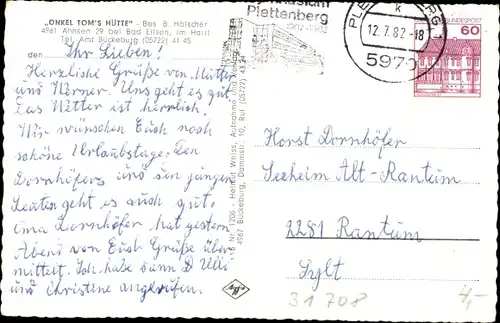 "ONKEL TOM'S HÜTTE" - Bes. B. Hölscher
4961 Ahnsen 29 bei Bad Eilsen, im Harrl
Tel. Amt Bückeburg (05722) 41 45
den
Ihr Lieben!
Herzliche Grüße von Mutter
und Werner. Uns geht es gut.
Das Wetter ist herrlich.
Wir wünschen Euch noch
schöne Urlaubstage. Den
Dornhöfers und den jungen
Leuten geht es auch gut.
Oma Dornhöfer hat gestern
Abend von Euch Grüße über
mittelt. Ich habe dann Ulli
und Christine angerufen.
1206 - Helmut Weiss, Autogrüne und Verlag
4967 Bückeburg, Dammstr. 10, Ruf (05722)
Plettenberg
PLETTENBERG
k
12.7.82-18
5970
BUNDESPOST
60
Horst Dornhöfer
Seeheim Alt-Rantum
2281 Rantum
Sylt
31 708
4,-